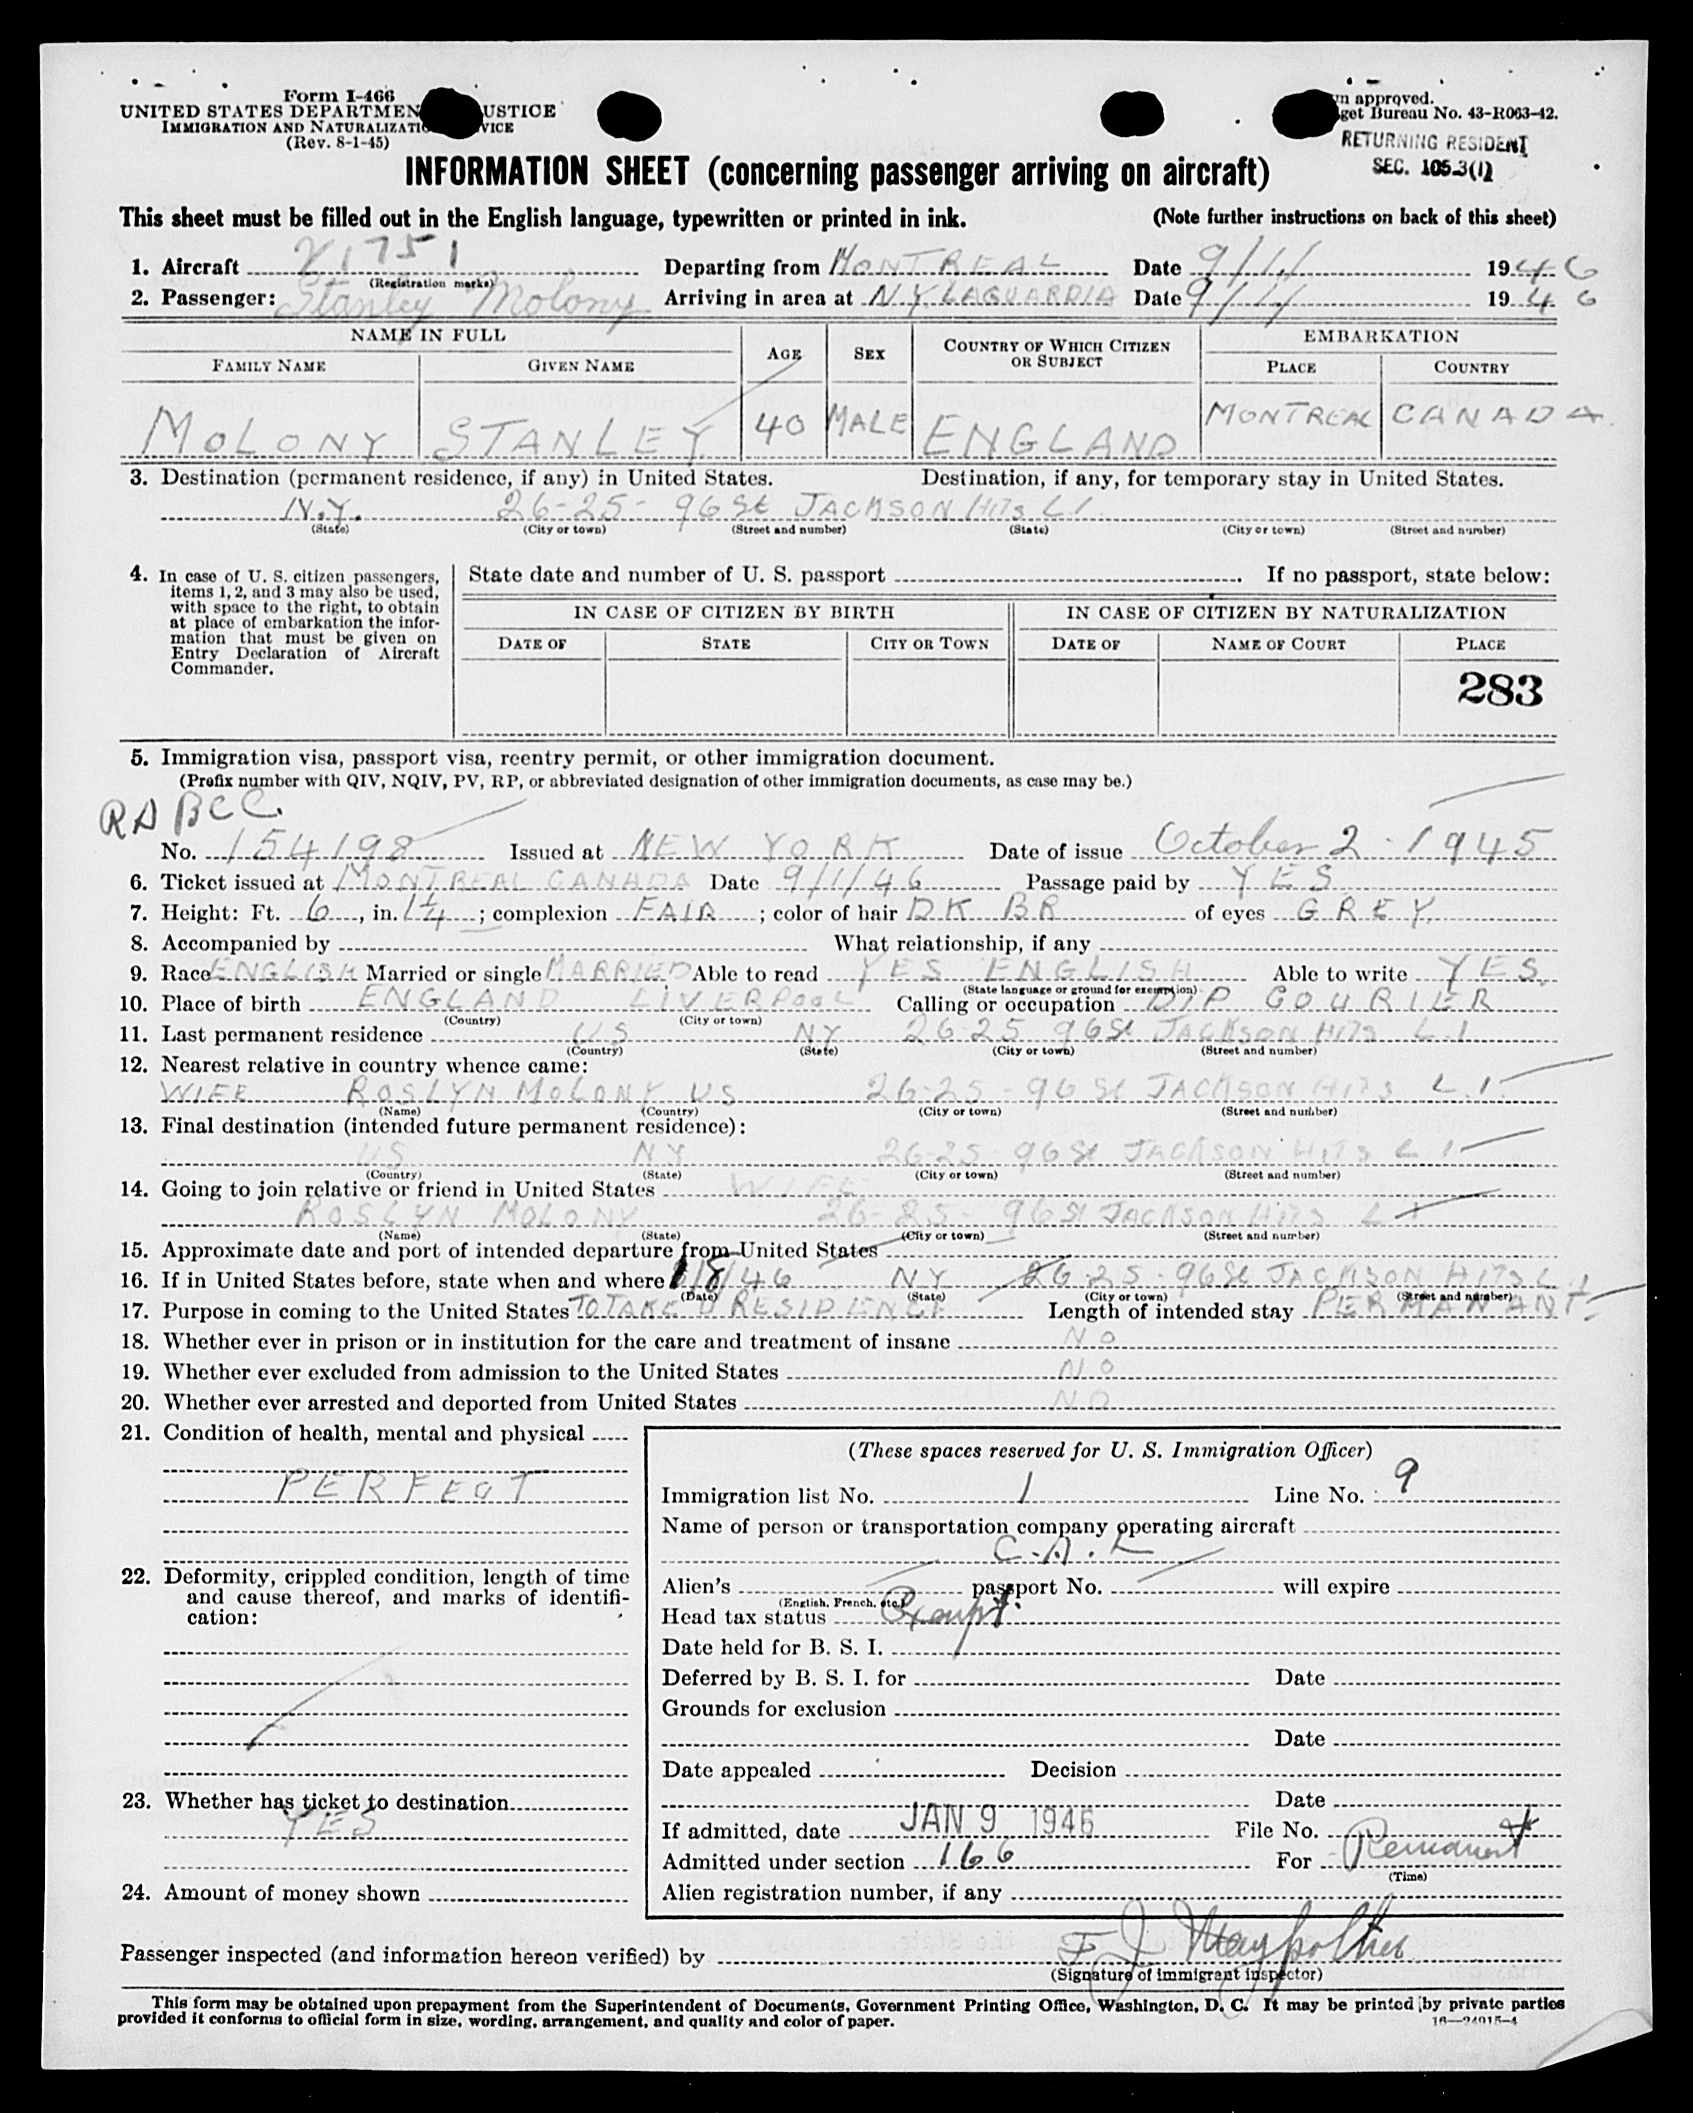 Form I-466
UNITED STATES DEPARTMEN USTICE
IMMIGRATION AND NATURALIZATIO VICE
(Rev. 8-1-45)
n approved.
get Bureau No. 43-R063-42.
RETURNING RESIDENT
SEC. 105.3(1)
INFORMATION SHEET (concerning passenger arriving on aircraft)
This sheet must be filled out in the English language, typewritten or printed in ink. (Note further instructions on back of this sheet)
1. Aircraft 21751 Departing from MONTREAL Date 9/1/ 1946
(Registration marks)
2. Passenger: Stanley Molony Arriving in area at N.Y. LAGUARDIA Date 9/1/ 1946
NAME IN FULL AGE SEX COUNTRY OF WHICH CITIZEN OR SUBJECT EMBARKATION
FAMILY NAME GIVEN NAME PLACE COUNTRY
MOLONY STANLEY 40 MALE ENGLAND MONTREAL CANADA
3. Destination (permanent residence, if any) in United States. Destination, if any, for temporary stay in United States.
N.Y. 26-25- 96 St JACKSON Hits L I
(State) (City or town) (Street and number) (State) (City or town) (Street and number)
4. In case of U. S. citizen passengers,
items 1, 2, and 3 may also be used,
with space to the right, to obtain
at place of embarkation the infor-
mation that must be given on
Entry Declaration of Aircraft
Commander.
State date and number of U. S. passport . If no passport, state below:
IN CASE OF CITIZEN BY BIRTH IN CASE OF CITIZEN BY NATURALIZATION
DATE OF STATE CITY OR TOWN DATE OF NAME OF COURT PLACE
283
5. Immigration visa, passport visa, reentry permit, or other immigration document.
(Prefix number with QIV, NQIV, PV, RP, or abbreviated designation of other immigration documents, as case may be.)
RABCC.
No. 154198 Issued at NEW YORK Date of issue October 2 - 1945
6. Ticket issued at MONTREAL CANADA Date 9/1/46 Passage paid by YES
7. Height: Ft. 6, in. 1¼; complexion FAIR; color of hair DK BR of eyes GREY.
8. Accompanied by What relationship, if any
9. Race ENGLISH Married or single MARRIED Able to read YES ENGLISH Able to write YES.
(State language or ground for exemption)
10. Place of birth ENGLAND LIVERPOOL Calling or occupation DIP COURIER
(Country) (City or town)
11. Last permanent residence US NY 26-25 96 St JACKSON Hits L.I
(Country) (State) (City or town) (Street and number)
12. Nearest relative in country whence came:
WIFE ROSLYN MOLONY US 26-25 - 96 St JACKSON Hits L.I.
(Name) (Country) (City or town) (Street and number)
13. Final destination (intended future permanent residence):
US NY 26-25- 96 St JACKSON Hits L I
(Country) (State) (City or town) (Street and number)
14. Going to join relative or friend in United States WIFE
ROSLYN MOLONY 26-25- 96 St JACKSON Hits L I
(Name) (State) (City or town) (Street and number)
15. Approximate date and port of intended departure from United States
16. If in United States before, state when and where 1/8/46 NY 26-25- 96 St JACKSON Hits L I
(Date) (State) (City or town) (Street and number)
17. Purpose in coming to the United States TO TAKE RESIDENCE Length of intended stay PERMANANT
18. Whether ever in prison or in institution for the care and treatment of insane NO
19. Whether ever excluded from admission to the United States NO
20. Whether ever arrested and deported from United States NO
21. Condition of health, mental and physical
PERFECT
22. Deformity, crippled condition, length of time
and cause thereof, and marks of identifi-
cation:
23. Whether has ticket to destination
YES
24. Amount of money shown
(These spaces reserved for U. S. Immigration Officer)
Immigration list No. 1 Line No. 9
Name of person or transportation company operating aircraft
C.A.L
Alien's passport No. will expire
(English, French, etc.)
Head tax status Exempt.
Date held for B. S. I.
Deferred by B. S. I. for Date
Grounds for exclusion
Date
Date appealed Decision
Date
If admitted, date JAN 9 1946 File No.
Admitted under section 166 For Permanent
(Time)
Alien registration number, if any
Passenger inspected (and information hereon verified) by F J
(Signature of immigrant inspector)
This form may be obtained upon prepayment from the Superintendent of Documents, Government Printing Office, Washington, D. C. It may be printed by private parties
provided it conforms to official form in size, wording, arrangement, and quality and color of paper.
16—24915-4